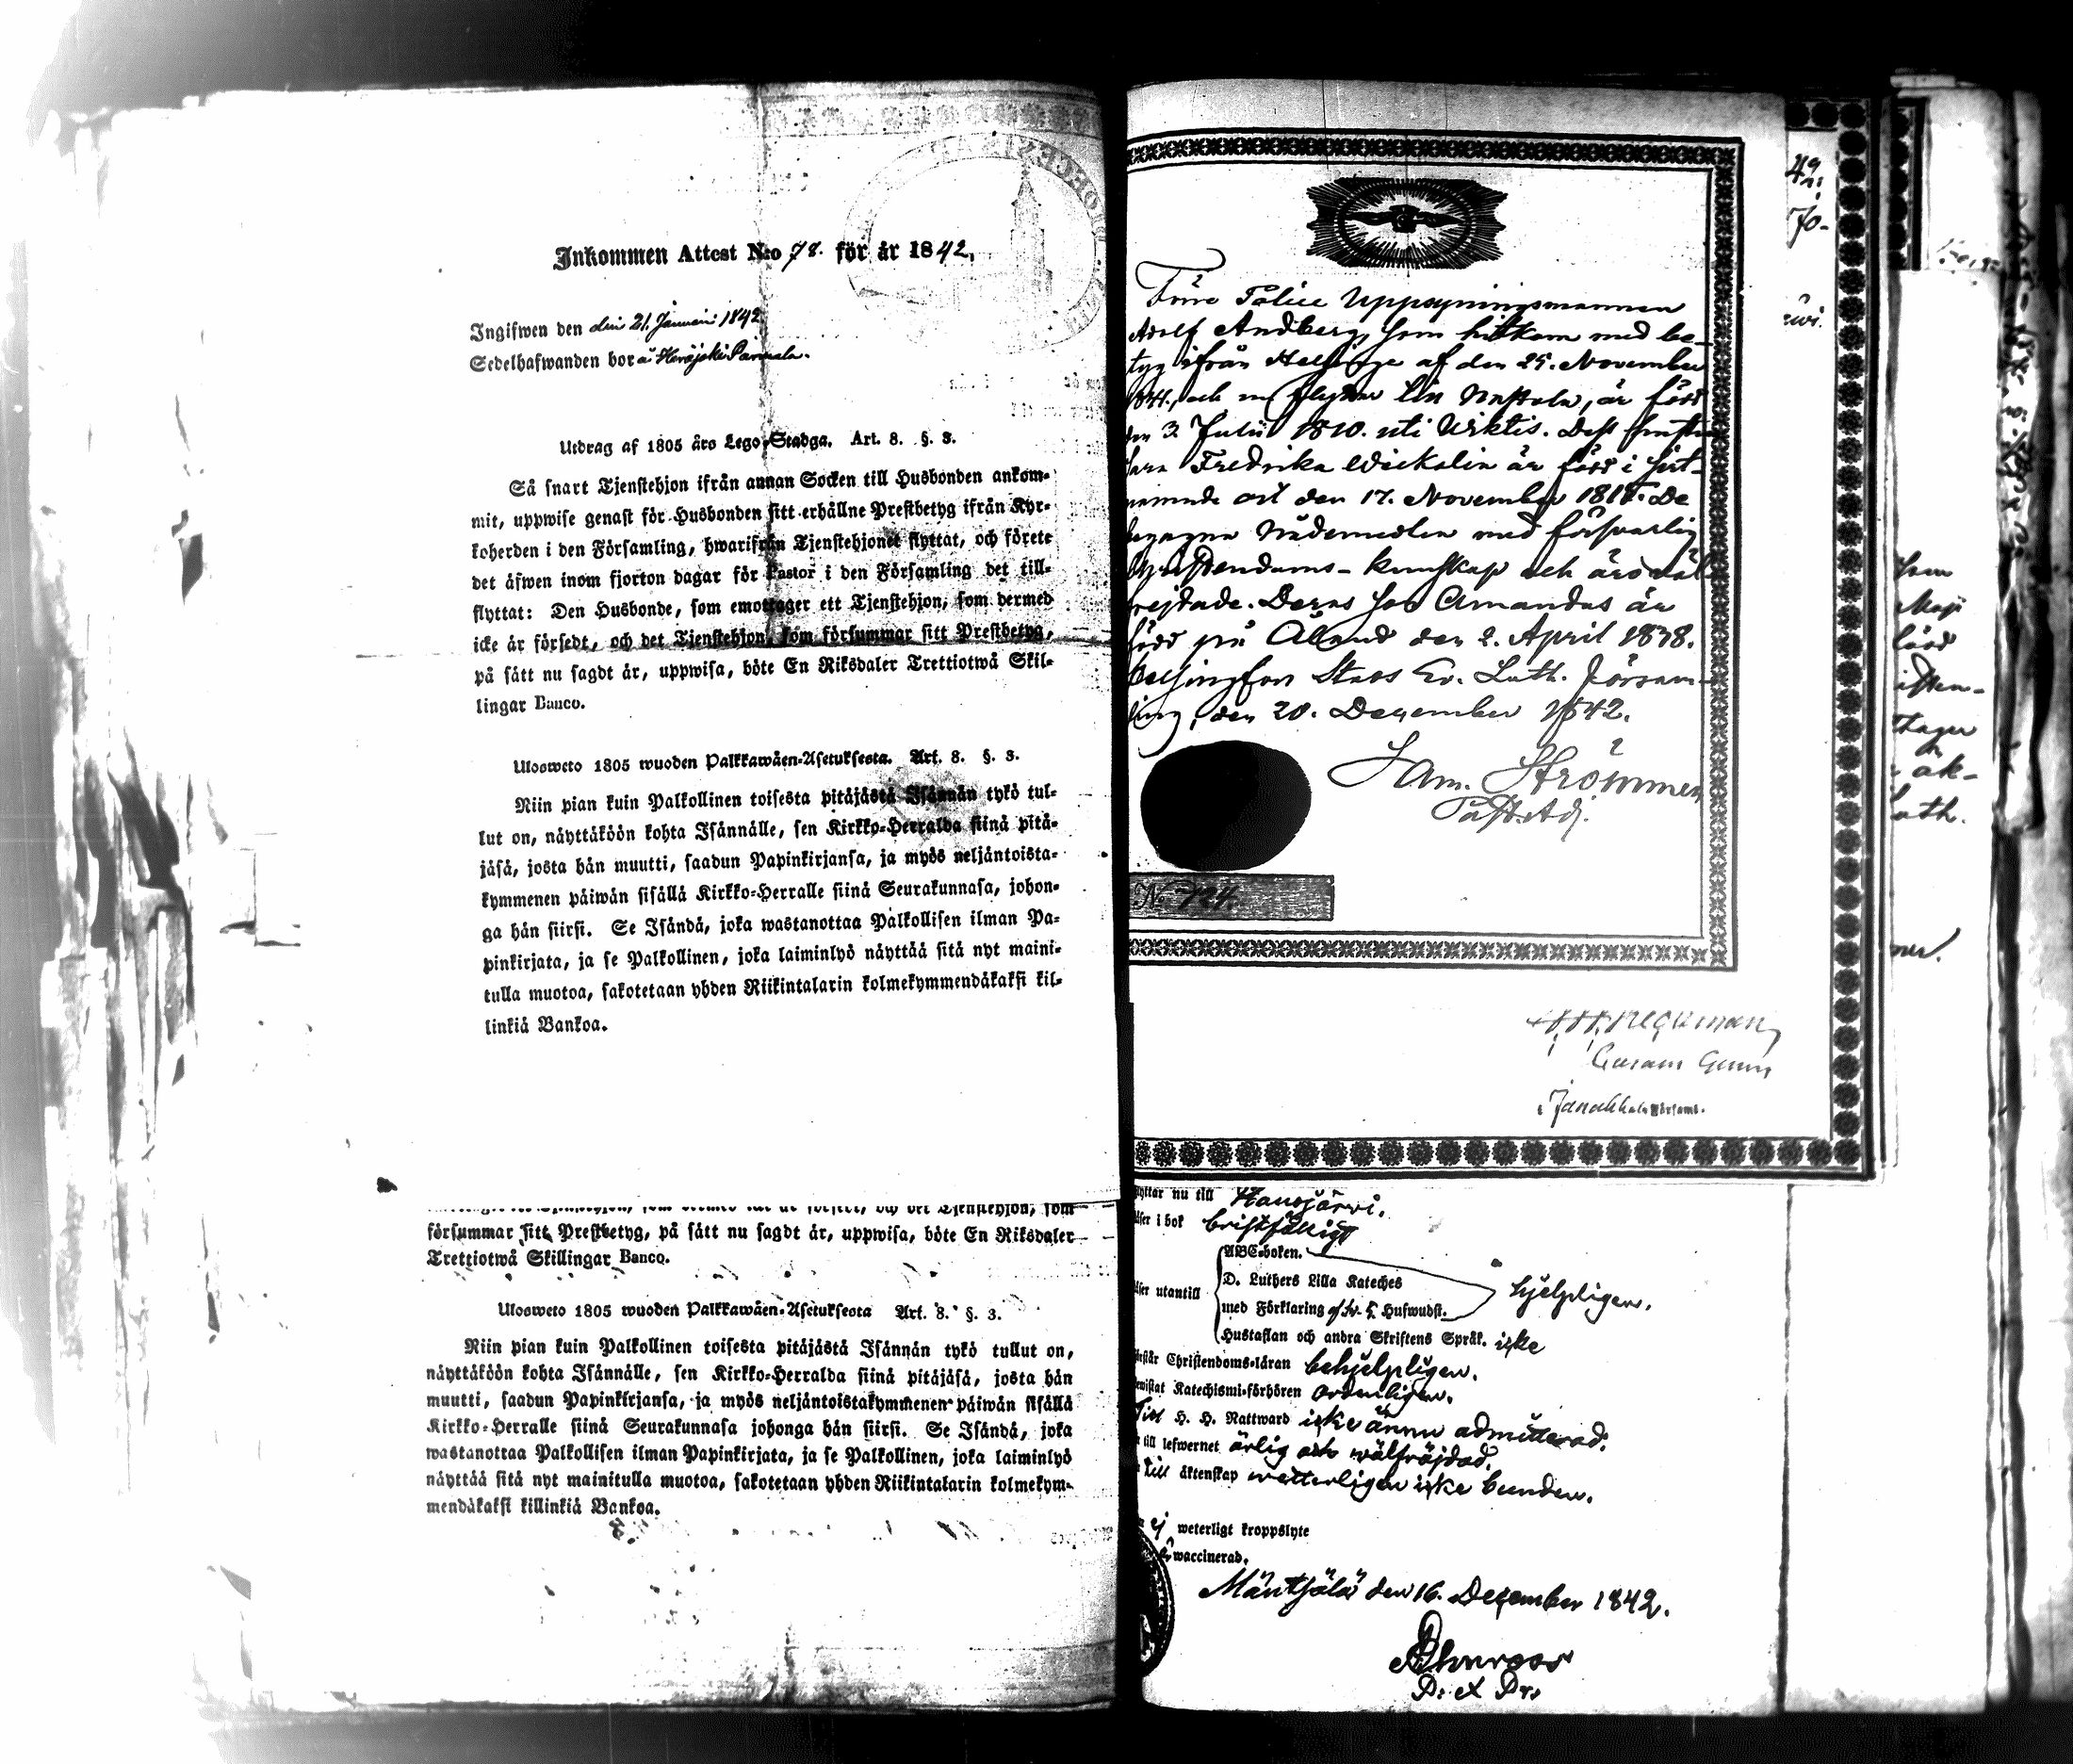 Inkommen Attest N:o 78. för år 1842.
Ingifwen den den 21. Januari 1842
Sedelhafwanden bor å Herajoki
Utdrag af 1805 års Lego-Stadga. Art. 8. §. 3.
Så snart Tjenstehjon ifrån annan Socken till Husbonden ankom-
mit, uppwise genast för Husbonden sitt erhållne Prestbetyg ifrån Kyr-
koherden i den Församling, hwarifrån Tjenstehjonet flyttat, och förete
det äfwen inom fjorton dagar för Pastor i den Församling det till-
flyttat: Den Husbonde, som emottager ett Tjenstehjon, som dermed
icke är försedt, och det Tjenstehjon, som försummar sitt Prestbetyg,
på sätt nu sagdt är, uppwisa, böte En Riksdaler Trettiotwå Skil-
lingar Banco.
Ulosweto 1805 wuoden Palkkawäen-Asetuksesta. Art. 8. §. 3.
Niin pian kuin Palkollinen toisesta pitäjästä Isännän tykö tul-
lut on, näyttäköön kohta Isännälle, sen Kirkko-Herralda siinä pitä-
jäsä, josta hän muutti, saadun Papinkirjansa, ja myös neljäntoista-
kymmenen päiwän sisällä Kirkko-Herralle siinä Seurakunnasa, johon-
ga hän siirsi. Se Isändä, joka wastanottaa Palkollisen ilman Pa-
pinkirjata, ja se Palkollinen, joka laiminlyö näyttää sitä nyt maini-
tulla muotoa, sakotetaan yhden Riikintalarin kolmekymmendäkaksi kil-
linkiä Bankoa.
försummar sitt Prestbetyg, på sätt nu sagdt är, uppwisa, böte En Riksdaler
Trettiotwå Skillingar Banco.
Ulosweto 1805 wuoden Palkkawäen-Asetuksesta Art. 8. §. 3.
Niin pian kuin Palkollinen toisesta pitäjästä Isännän tykö tullut on,
näyttäköön kohta Isännälle, sen Kirkko-Herralda siinä pitäjäsä, josta hän
muutti, saadun Papinkirjansa, ja myös neljäntoistakymmenen päiwän sisällä
Kirkko-Herralle siinä Seurakunnasa johonga hän siirsi. Se Isändä, joka
wastanottaa Palkollisen ilman Papinkirjata, ja se Palkollinen, joka laiminlyö
näyttää sitä nyt mainitulla muotoa, sakotetaan yhden Riikintalarin kolmekym-
mendäkaksi killinkiä Bankoa.
Förre Police Uppsyningsmannen
Adolf Andberg, som hitkom med be-
tyg ifrån Helsinge af den 25. November
1841, och nu flyttar till Nastola, är född
den 3. Julii 1810. uti Wiktis. Dess hustru
Fredrika Wickolin är född i sist-
nämnde ort den 17. November 1818. De
begagna Nådemedlen med försvarlig
Christendoms-kunskap och äro väl
frejdade. Deras son Amandus är
född på Åland den 2. April 1838.
Helsingfors Stads Ev. Luth. Försam-
ling, den 20. December 1842.
Sam. Strömmer
Past. Adj.
No 124.
Janakkala Församl.
flyttar nu till Hausjärvi.
läser i bok bristfälligt
ABC-boken.
D. Luthers Lilla Kateches
läser utantill
hjelpligen.
med Förklaring af de 5 Hufwudst.
Hustaflan och andra Skriftens Språk. icke
förstår Christendoms-läran behjelpligen.
bewistat Katechismi-förhören ordentligen.
Till H. H. Nattward icke ännu admitterad.
till lefwernet ärlig och wälfräjdad.
till äktenskap wetterligen icke bunden.
ej weterligt kroppslyte
är waccinerad.
Mäntsälä den 16. December 1842.